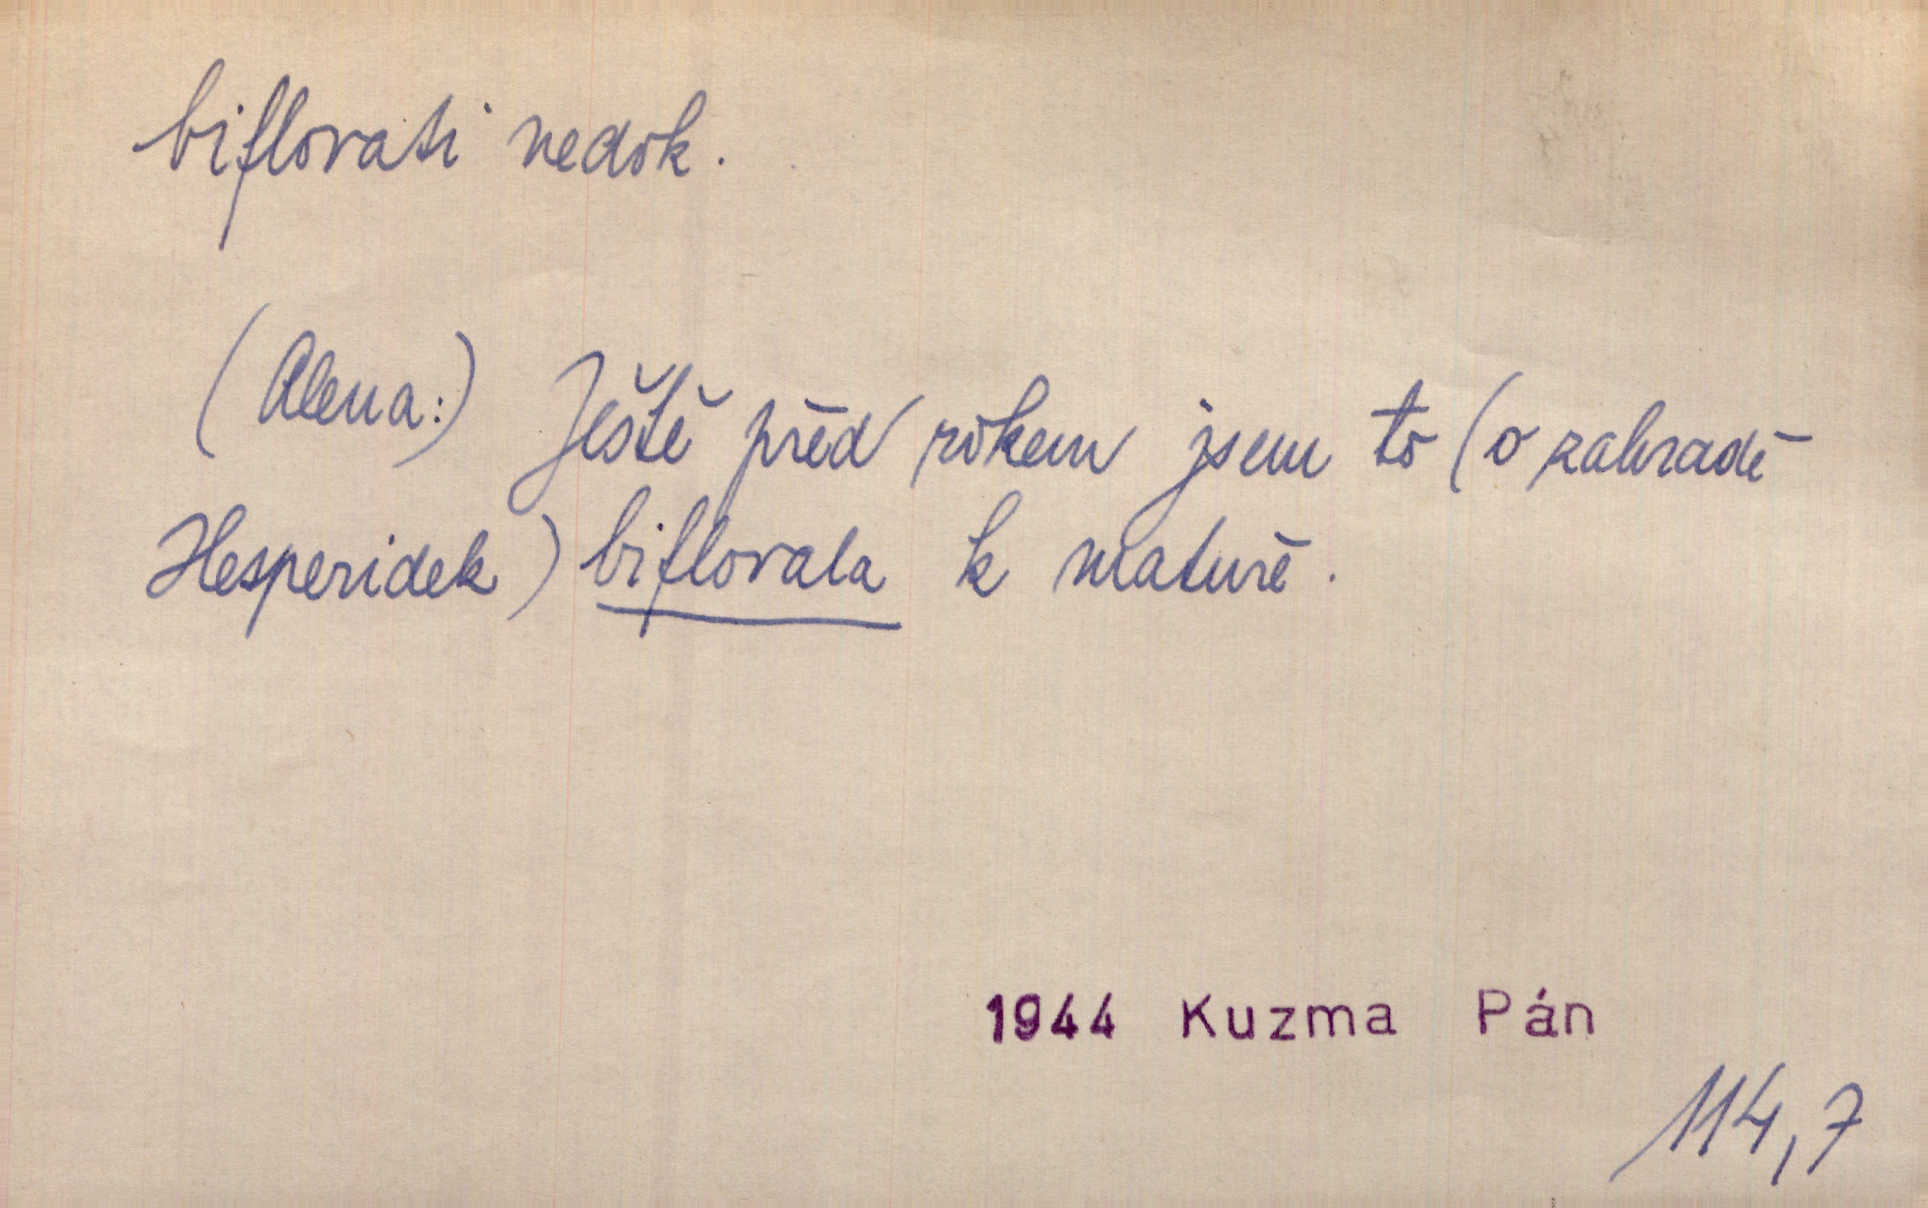 biflovati nedok.
(Alena:) Ještě před rokem jsem to (o zahradě
Hesperidek) biflovala k matuře.
1944 Kuzma Pán
114,7